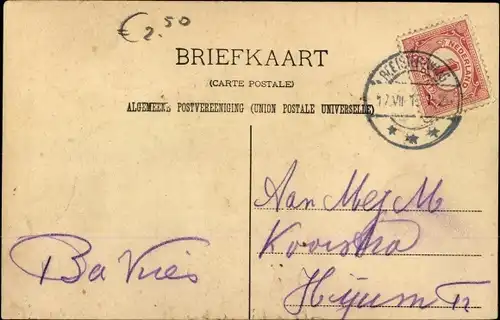 € 2.50
BRIEFKAART
(CARTE POSTALE)
ALGEMEENE POSTVEREENIGING (UNION POSTALE UNIVERSELLE)
NEDERLAND
Aan Mej M
Kooistra
Hijum
Ba Vries